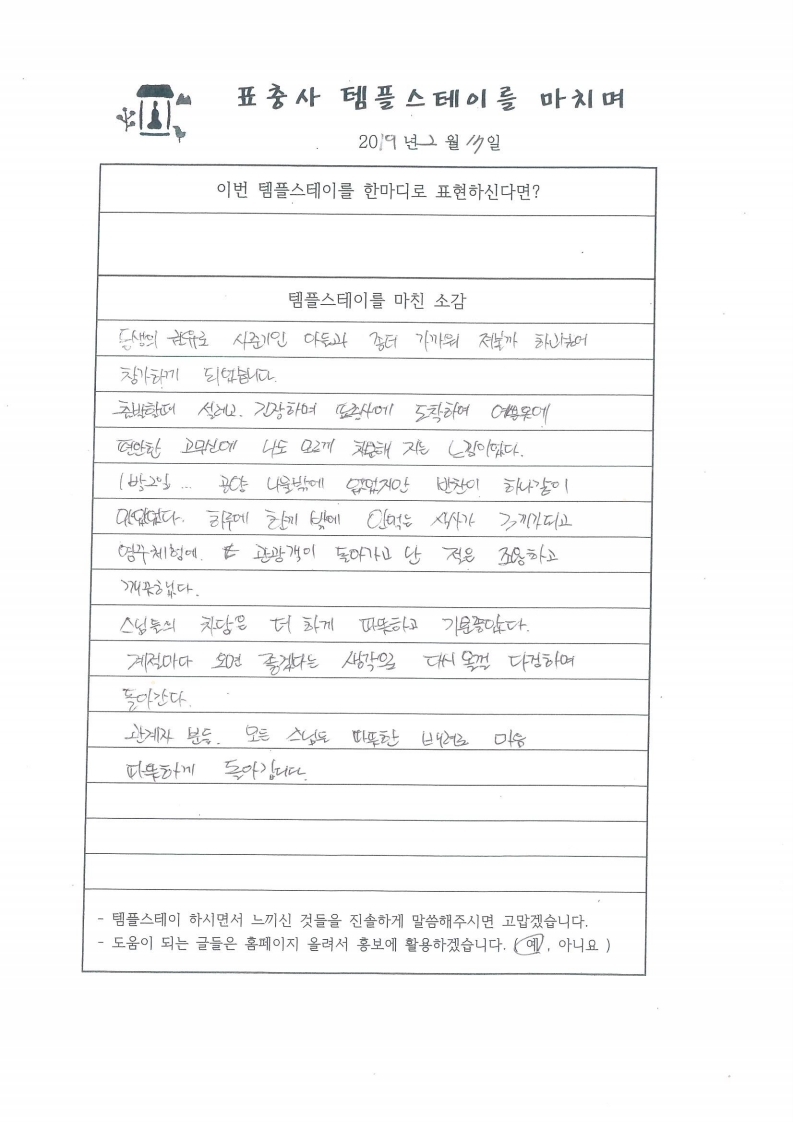 표충사 템플스테이를 마치며
2019년 2월 17일
이번 템플스테이를 한마디로 표현하신다면?
템플스테이를 마친 소감
동생의 권유로 사춘기인 아들과 좀더 가까워 져볼까 하
참가하게 되었습니다.
출발할때 설레고. 긴장하며 표충사에 도착하여
편안한 고무신에 나도 모르게 차분해 지는 느낌이었다.
1박2일... 공양 나물밖에 없었지만 반찬이 하나같이
맛있었다. 하루에 한끼 밖에 안먹는 식사가 3끼가되고
염주체험에. 관광객이 돌아가고 난 적은 조용하고
깨끗했다.
스님들의 차담은 더 하게 따뜻하고 기분좋았다.
계절마다 오면 좋겠다는 생각을 다시 올껄 다짐하며
돌아간다.
관계자 분들. 모든 스님들 따뜻한 배려로 마음
따뜻하게 돌아갑니다.
- 템플스테이 하시면서 느끼신 것들을 진솔하게 말씀해주시면 고맙겠습니다.
- 도움이 되는 글들은 홈페이지 올려서 홍보에 활용하겠습니다. ( 예 , 아니요 )